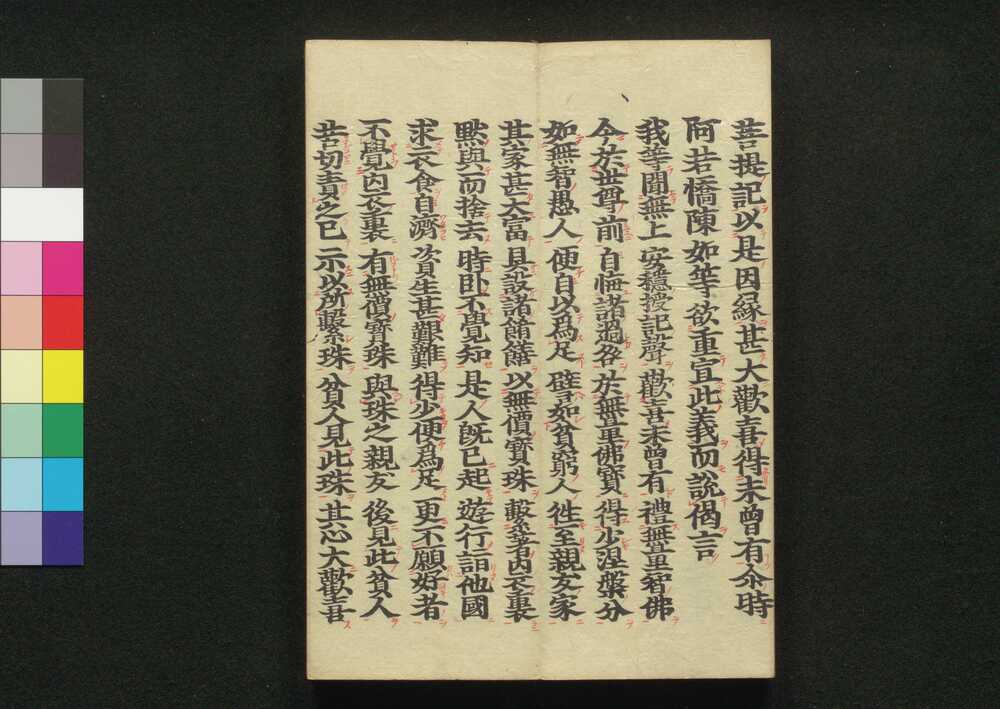 菩提記以是因縁甚大歡喜得未曾有尒時
阿若憍陳如等欲重宣此義而說偈言
我等聞無上 安穩授記聲 歡喜未曾有 禮無量智佛
今於世尊前 自悔諸過咎 於無量佛寶 得少涅槃分
如無智愚人 便自以爲足 譬如貧窮人 徃至親友家
其家甚大富 具設諸餚饍 以無價寶珠 繫著内衣裏
默與而捨去 時卧不覺知 是人旣已起 遊行詣他國
求衣食自濟 資生甚艱難 得少便爲足 更不願好者
不覺内衣裏 有無價寶珠 與珠之親友 後見此貧人
苦切責之已 示以所繫珠 貧人見此珠 其心大歡喜